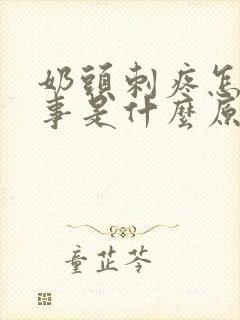 奶頭刺疼怎
事是什麼原
童芷苓